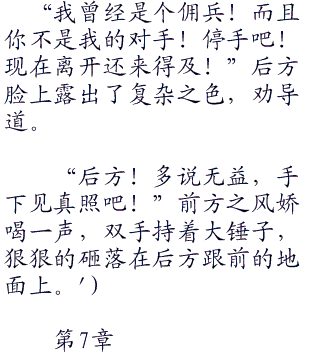 “我曾经是个佣兵！而且
你不是我的对手！停手吧！
现在离开还来得及！”后方
脸上露出了复杂之色，劝导
道。
“后方！多说无益，手
下见真照吧！”前方之风娇
喝一声，双手持着大锤子，
狠狠的砸落在后方跟前的地
面上。′）
第7章